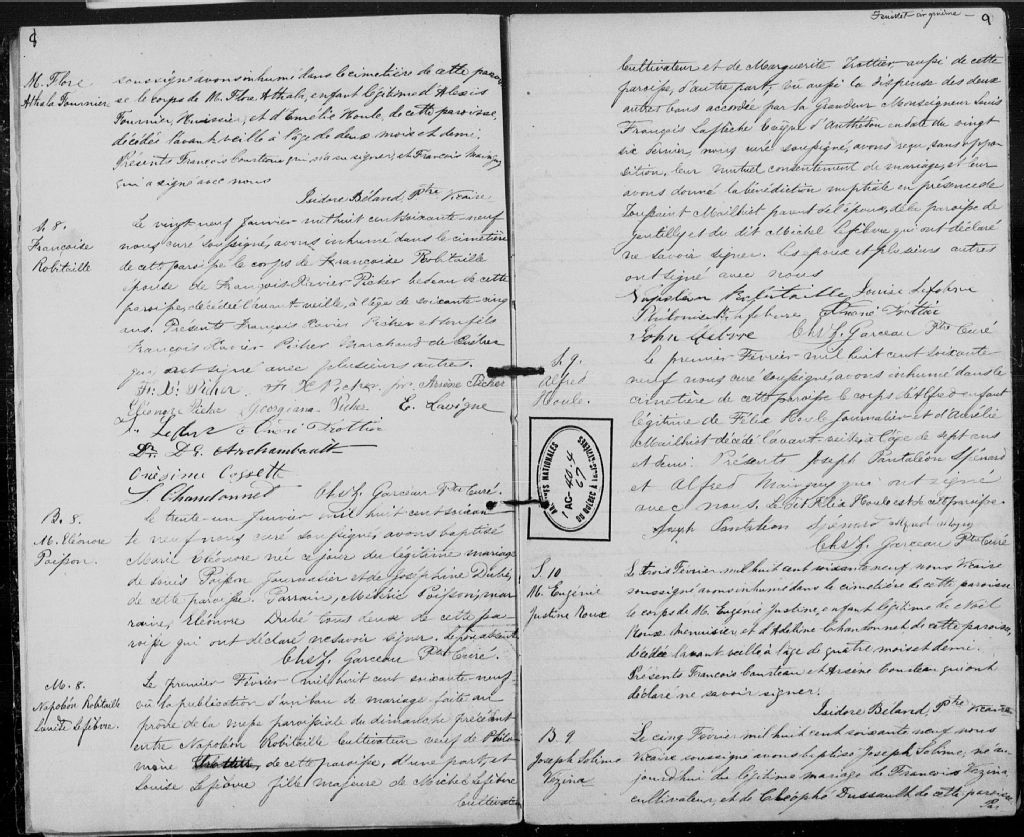 8
M. Flore
Athala Fournier
soussigné avons inhumé dans le cimetière de cette parois-
se le corps de M. Flore Athala, enfant légitime d'Alexis
Fournier, Huissier, et d'Amélie Houle, de cette paroisse,
décédée l'avant veille à l'âge de deux mois et demi.
Présents François Courteau qui n'a su signer, et François Mainguy
qui a signé avec nous
Isidore Béland, Ptre Vicaire
S. 8.
Francoise
Robitaille
Le vingt neuf Janvier mil huit cent soixante neuf
nous, curé soussigné, avons inhumé dans le cimetière
de cette paroisse le corps de Francoise Robitaille
épouse de François Xavier Picher bedeau de cette
paroisse, décédée l'avant-veille, à l'âge de soixante cinq
ans. Présents François Xavier Picher et son fils
François Xavier Picher Marchand de
qui ont signé avec plusieurs autres.
Fr. Xr. Picher F. X Picher jr. Arsène Picher
Eléonore Picher Georgiana Picher E. Lavigne
Ledux Onésiré Trottier
Dr. D. G. Archambault
Onésime Cossett
S Chandonnet Chs Z. Garceau Ptre Curé.
B. 8.
M. Eléonore
Poisson.
Le trente-un Janvier mil huit cent soixan
te neuf nous curé soussigné, avons baptisé
Marie Eléonore né ce jour du légitime mariage
de Louis Poisson Journalier et de Joséphine Dubé,
de cette paroisse. Parrain, Médéric Poisson, mar
raine, Eléonore Dubé tous deux de cette pa-
roisse qui ont déclaré ne savoir signer. Le père absent
Chs Z. Garceau Ptre Curé.
M. 8.
Napoléon Robitaille
Louise Lefebvre.
Le premier Février mil huit cent soixante neuf
vu la publication d'un ban de mariage faite au
prône de la messe paroissiale du dimanche précédent
entre Napoléon Robitaille Cultivateur veuf de Philo
mène de cette paroisse, d'une part, et
Louise Lefebvre fille majeure de Michel Lefebvre
Cultivateur
Feuillet cinquième — 9
Cultivateur et de Marguerite Trottier, aussi de cette
paroisse, d'autre part. Vu aussi la dispense des deux
autres bans accordée par Sa Grandeur Monseigneur Louis
François Laflèche Evêque d'Anthédon en date du vingt
six dernier, nous curé soussigné, avons reçu, sans oppo
sition, leur mutuel consentement de mariage, et leur
avons donné la bénédiction nuptiale en présence de
Toussaint Mailhiot parent de l'époux, de la paroisse de
Gentilly et du dit Michel Lefebvre qui ont déclaré
ne savoir signer. Les époux et plusieurs autres
ont signé avec nous
Napoléon Robitaille Louise Lefebvre
Philomène Lefebvre Onésiré Trottier
John Lefebvre Chs Z. Garceau Ptre Curé
S. 9.
Alfred
Houle.
Le premier Février mil huit cent soixante
neuf nous curé soussigné, avons inhumé dans le
cimetière de cette paroisse le corps d'Alfred enfant
légitime de Félix Houle Journalier et d'Aurélie
Mailhiot décédé l'avant-veille, à l'âge de sept ans
et demi. Présents Joseph Pantaléon Spénard
et Alfred Mainguy qui ont signé
avec nous. Le dit Félix Houle est de cette paroisse.
Joseph Pantaléon Spénard Alfred Mainguy
Chs Z. Garceau Ptre Curé
ARCHIVES NATIONALES
1 AG-40.4
67
DU QUÉBEC À TROIS-RIVIÈRES
S. 10
M. Eugénie
Justine Roux
Le trois Février mil huit cent soixante neuf nous Vicaire
soussigné avons inhumé dans le cimetière de cette paroisse
le corps de M. Eugénie Justine, enfant légitime de Noël
Roux Menuisier et d'Adeline Chandonnet de cette paroisse,
décédée l'avant veille à l'âge de quatre mois et demi.
Présents François Courteau et Arsène Courteau qui ont
déclaré ne savoir signer.
Isidore Béland, Ptre Vicaire
B. 9
Joseph Solime
Vézina
Le cinq Février mil huit cent soixante neuf nous
Vicaire soussigné avons baptisé Joseph Solime, né au-
jourd'hui du légitime mariage de François Vézina
cultivateur, et de Cléophé Dussault de cette paroisse
Par.